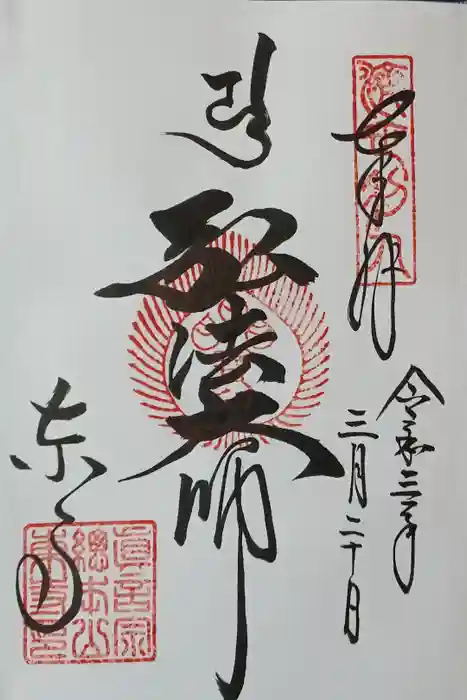 奉拝
令和三年
三月二十日
弘法大師
東寺
真言宗
總本山
東寺印